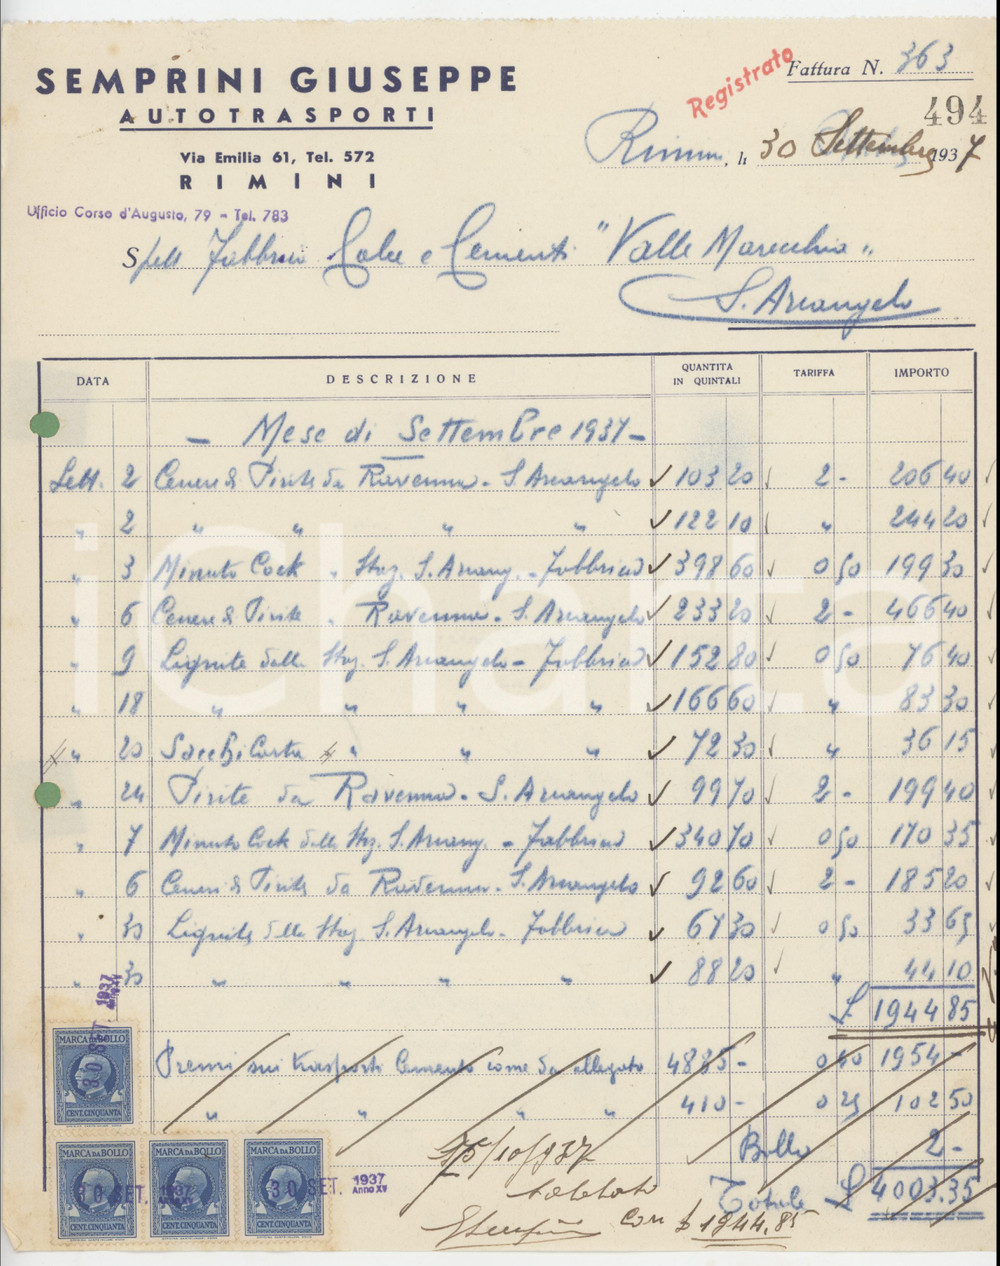 SEMPRINI GIUSEPPE
AUTOTRASPORTI
Via Emilia 61, Tel. 572
RIMINI
Ufficio Corso d'Augusto, 79 - Tel. 783
Registrato
Fattura N. 363
494
Rimini, li 30 Settembre 1937
Spett Fabbrica Calce e Cementi "Valle Marecchia"
S. Arcangelo
DATA DESCRIZIONE QUANTITA IN QUINTALI TARIFFA IMPORTO
- Mese di Settembre 1937 -
Sett. 2 Cenere di Pirite da Ravenna - S. Arcangelo 103 20 2 - 206 40
" 2 " " " " 122 10 " 244 20
" 3 Minuto Cock " Staz. S. Arcang. - Fabbrica 398 60 0 50 199 30
" 6 Cenere di Pirite " Ravenna - S. Arcangelo 233 20 2 - 466 40
" 9 Lignite dalla Staz. S. Arcangelo - Fabbrica 152 80 0 50 76 40
" 18 " " " " 166 60 " 83 30
" 20 Sacchi Carta " " " 72 30 " 36 15
" 24 Pirite da Ravenna - S. Arcangelo 99 70 2 - 199 40
" 7 Minuto Cock dalla Staz. S. Arcang. - Fabbrica 340 70 0 50 170 35
" 6 Cenere di Pirite da Ravenna - S. Arcangelo 92 60 2 - 185 20
" 30 Lignite dalla Staz. S. Arcangelo - Fabbrica 67 30 0 50 33 65
" 30 " " " " 88 20 " 44 10
£ 1944 85
Premi sui trasporti Cemento come da allegato 4885 - 0 40 1954 -
" " " " 410 - 0 25 102 50
Bollo 2 -
Totale £ 4003.35
15/10/937
con £ 1944.85
MARCA DA BOLLO
CENT. CINQUANTA
MARCA DA BOLLO
CENT. CINQUANTA
MARCA DA BOLLO
CENT. CINQUANTA
MARCA DA BOLLO
CENT. CINQUANTA
30 SET. 1937 Anno XV
30 SET. 1937
30 SET. 1937 Anno XV
iCharta